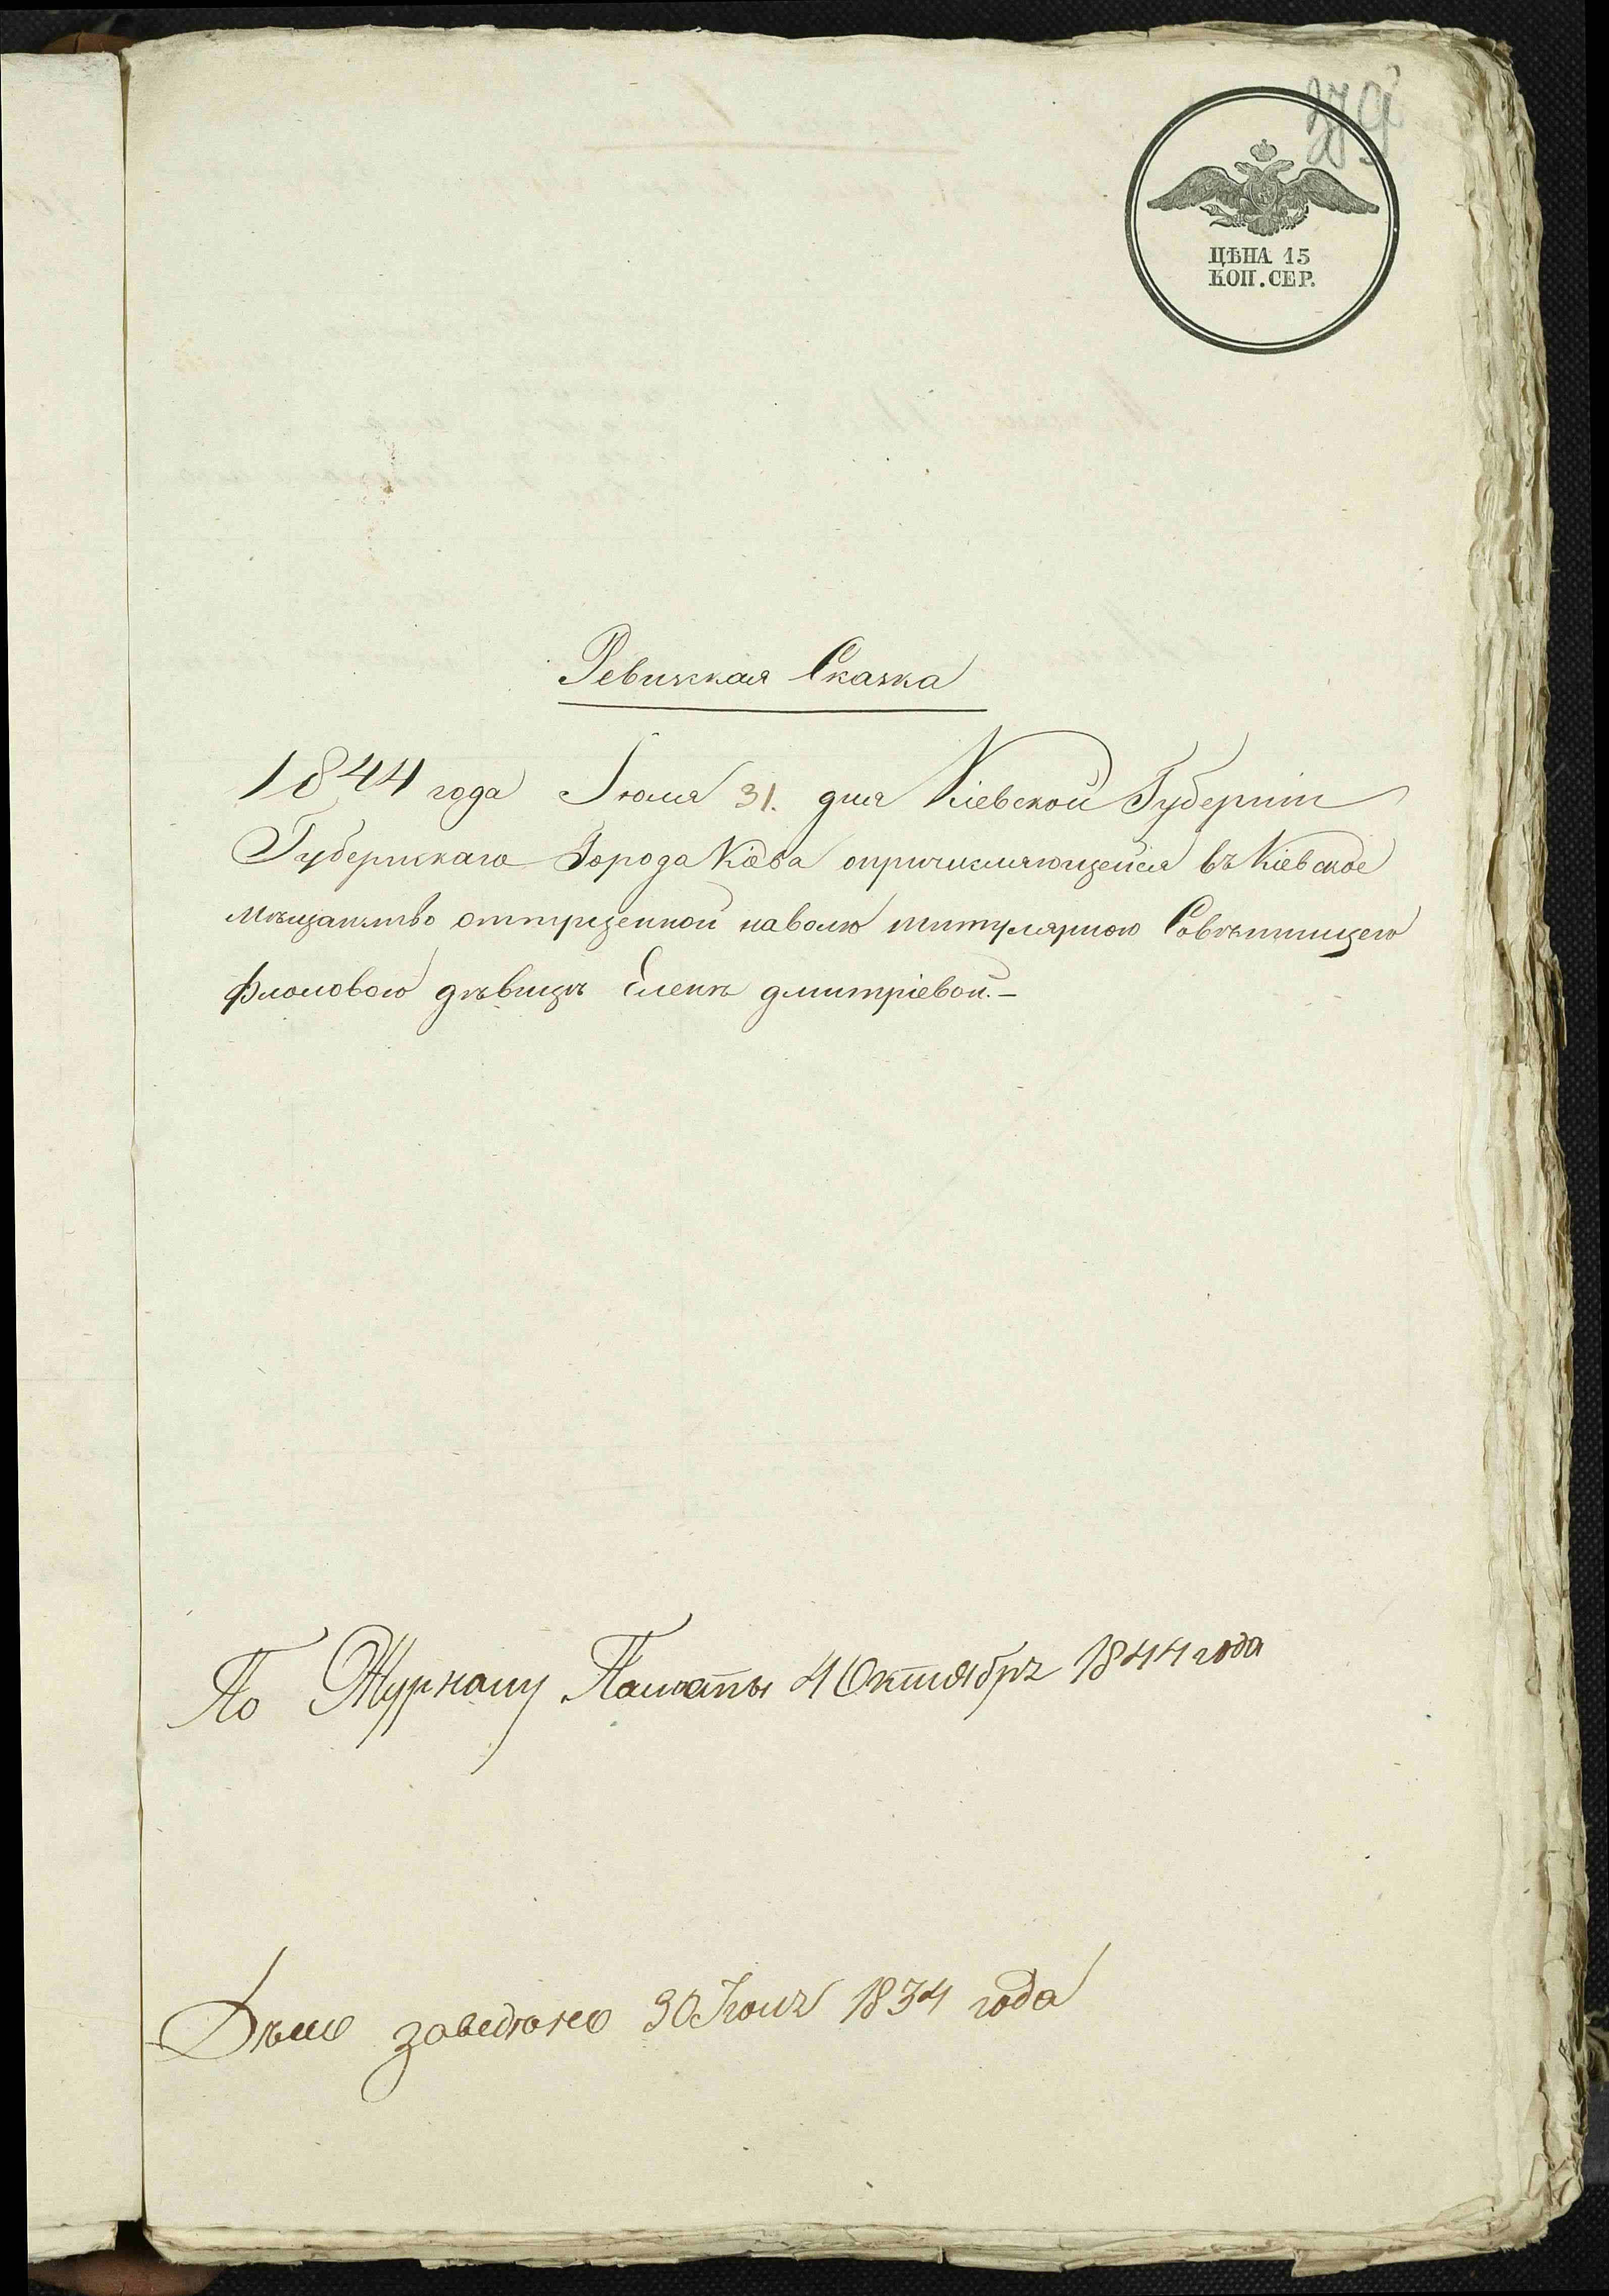 279
ЦѢНА 15
КОП. СЕР.
Ревизкая Сказка
1844 года Іюля 31. дня Кіевской Губерніи
Губернскаго Города Кіева опричисляющейся въ Кіевское
мѣщанство отпущенной наволю титулярною Совѣтницею
дѣвицѣ Еленѣ дмитріевой.-
По Журналу Палаты 4 Октября 1844 года
Дѣло заведено 30 1834 года